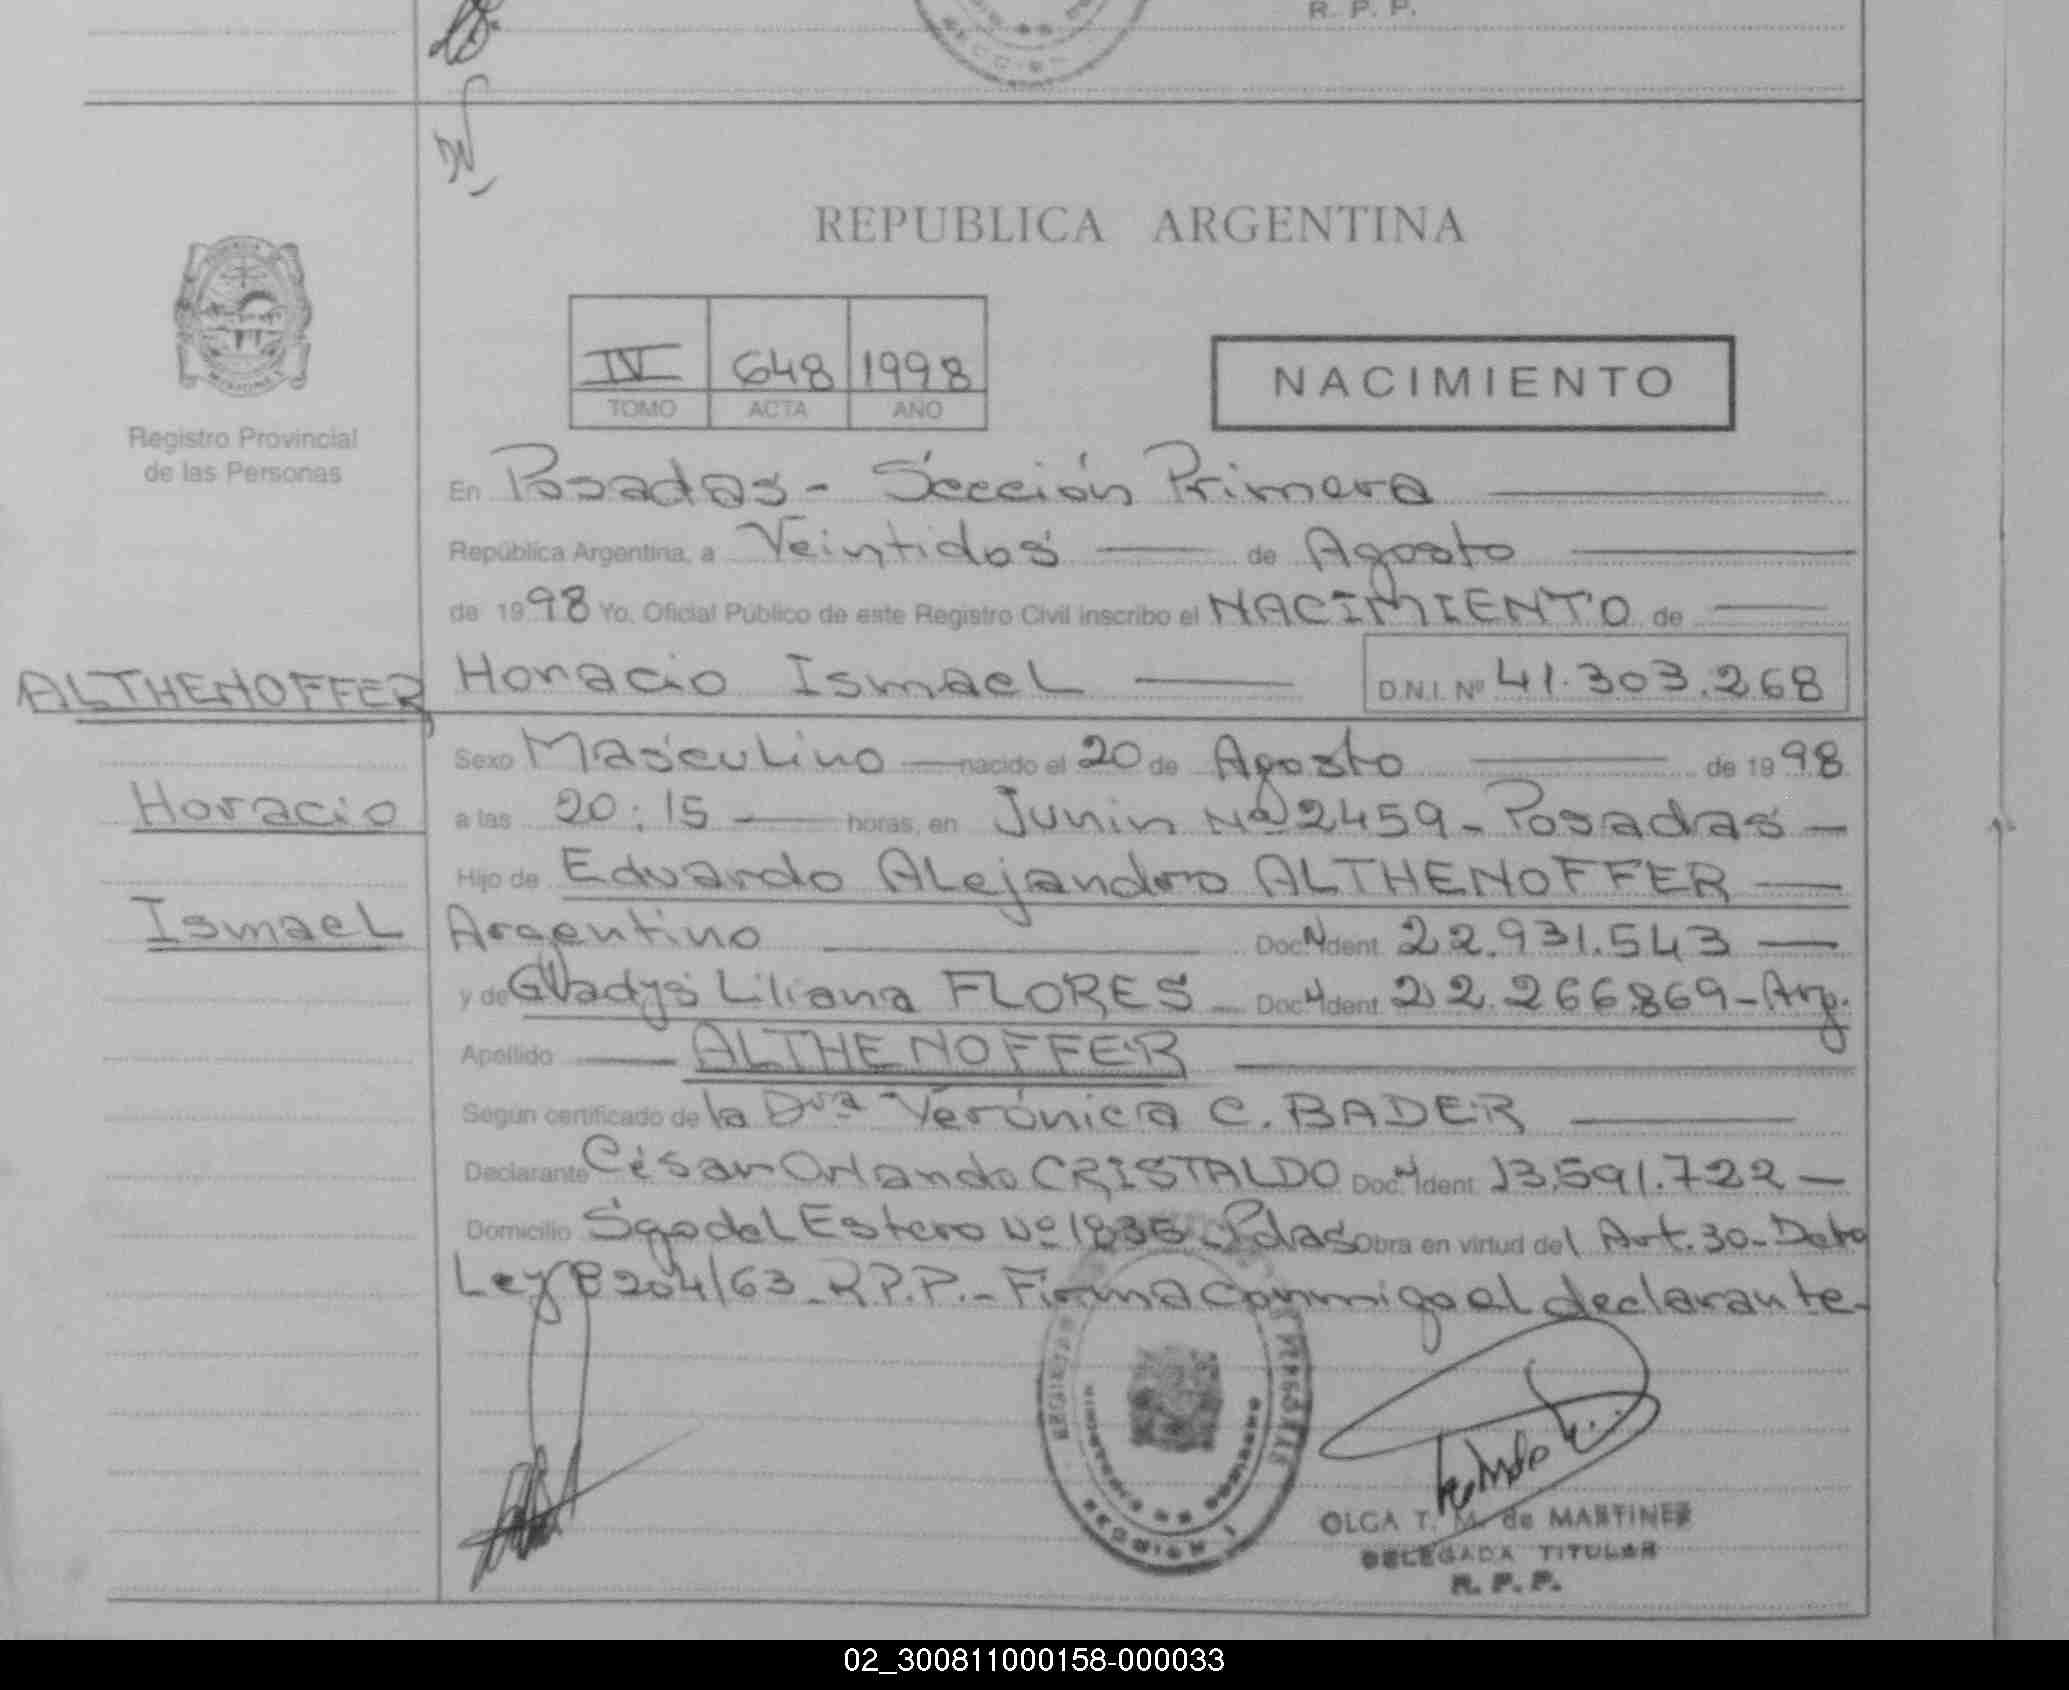 R. P. P.
REPUBLICA ARGENTINA
IV 648 1998
TOMO ACTA AÑO
NACIMIENTO
Registro Provincial
de las Personas
En Posadas - Sección Primera
República Argentina, a Veintidos de Agosto
de 1998 Yo, Oficial Público de este Registro Civil inscribo el NACIMIENTO de
ALTHENOFFER
Horacio Ismael D.N.I. Nº 41.303.268
Sexo Masculino nacido el 20 de Agosto de 1998
Horacio
a las 20:15 horas, en Junin Nº 2459 - Posadas -
Hijo de Eduardo Alejandro ALTHENOFFER
Ismael
Argentino Doc. N Ident. 22.931.543
y de Gladys Liliana FLORES - Doc. N Ident. 22.266.869 - Arg.
Apellido ALTHENOFFER
Según certificado de la Dra. Verónica C. BADER
Declarante César Orlando CRISTALDO Doc. N Ident. 13.591.722 -
Domicilio Sgo del Estero Nº 1836 - Pdas Obra en virtud del Art. 30 - Dcto
Ley 8204/63 - R.P.P. - Firma conmigo el declarante -
OLGA T. M. de MARTINEZ
DELEGADA TITULAR
R. P. P.
02_300811000158-000033